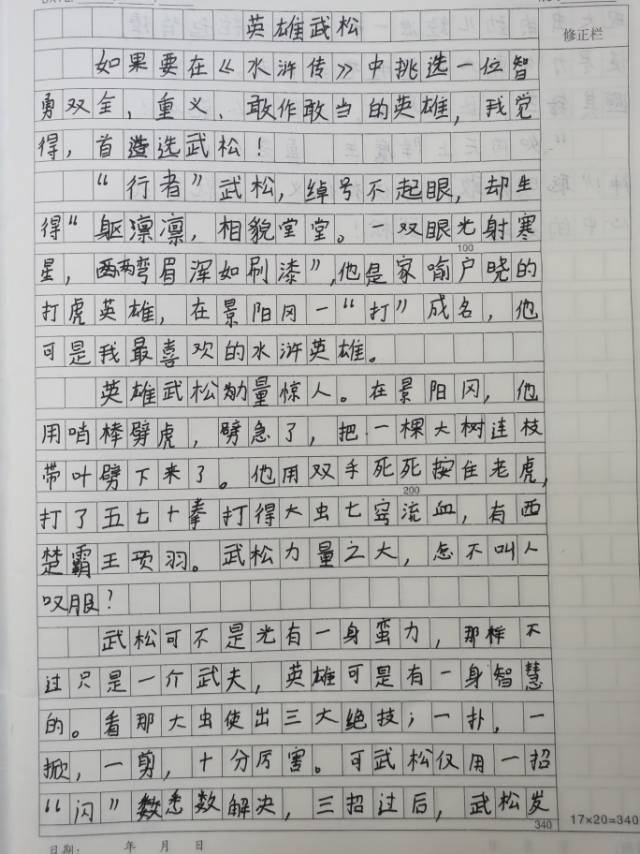 英雄武松
修正栏
如果要在《水浒传》中挑选一位智
勇双全，重义、敢作敢当的英雄，我觉
得，首选武松！
“行者”武松，绰号不起眼，却生
得“躯凛凛，相貌堂堂。一双眼光射寒
星，两弯眉浑如刷漆”，他是家喻户晓的
100
打虎英雄，在景阳冈一“打”成名，他
可是我最喜欢的水浒英雄。
英雄武松力量惊人。在景阳冈，他
用哨棒劈虎，劈急了，把一棵大树连枝
带叶劈下来了。他用双手死死按住老虎，
200
打了五七十拳打得大虫七窍流血，有西
楚霸王项羽。武松力量之大，怎不叫人
叹服？
武松可不是光有一身蛮力，那样不
过只是一介武夫，英雄可是有一身智慧
的。看那大虫使出三大绝技；一扑，一
掀，一剪，十分厉害。可武松仅用一招
“闪”数悉数解决，三招过后，武松发
340
17×20=340
日期： 年 月 日